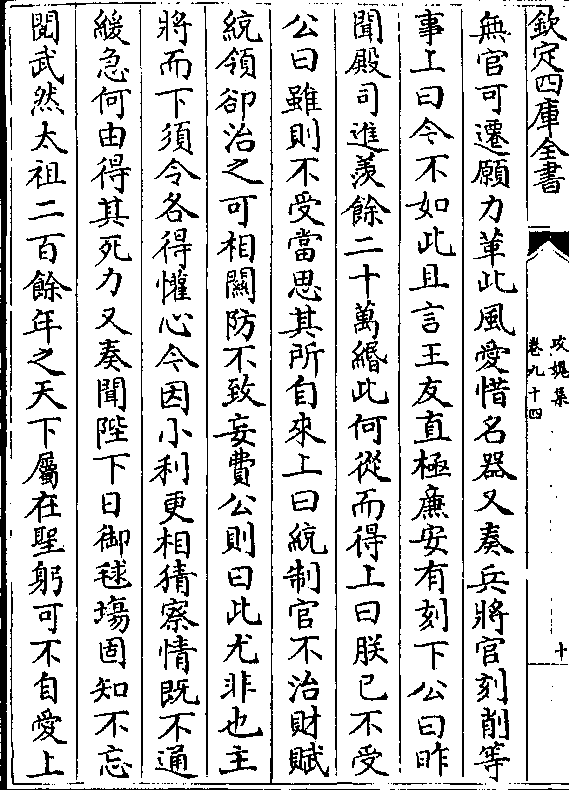 欽定四庫全書
攻媿集
卷九十四
十
無官可遷願力革此風愛惜名器又奏兵將官刻削等
事上曰今不如此且言王友直極廉安有刻下公曰昨
聞殿司進羨餘二十萬緡此何從而得上曰朕已不受
公曰雖則不受當思其所自來上曰統制官不治財賦
統領卻治之可相關防不致妄費公則曰此尤非也主
將而下須令各得懽心今因小利更相猜察情既不通
緩急何由得其死力又奏聞陛下日御毬塲固知不忘
閱武然太祖二百餘年之天下屬在聖躬可不自愛上